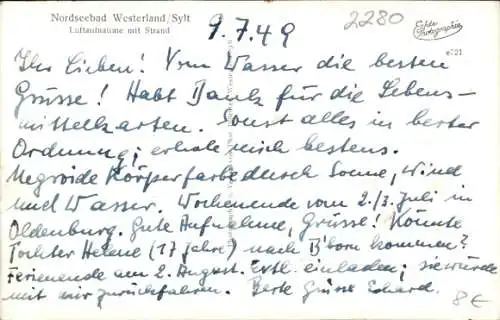 Nordseebad Westerland/Sylt
Luftaufnahme mit Strand
9.7.49
2280
Echte Photographie
e721
Ihr Lieben! Vom Wasser die besten
Grüsse! Habt Dank für die Lebens-
mittelkarten. Sonst alles in bester
Ordnung; erhole mich bestens.
Negroide Körperfarbe durch Sonne, Wind
und Wasser. Wochenende vom 2./3. Juli in
Oldenburg. Gute Aufnahme, Grüsse! Könnte
Tochter Helene (17 Jahre) nach B'born kommen?
Ferienende am 2. August. Evtl. einladen; sie würde
mit mir zurückfahren. Beste Grüsse Eckard.
8 €